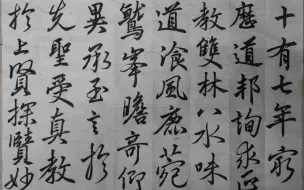 十有七年窮
歷道邦詢求正
教雙林八水味
道飡風鹿菀
鷲峯瞻奇仰
異承至言於
先聖受真教
於上賢探賾妙